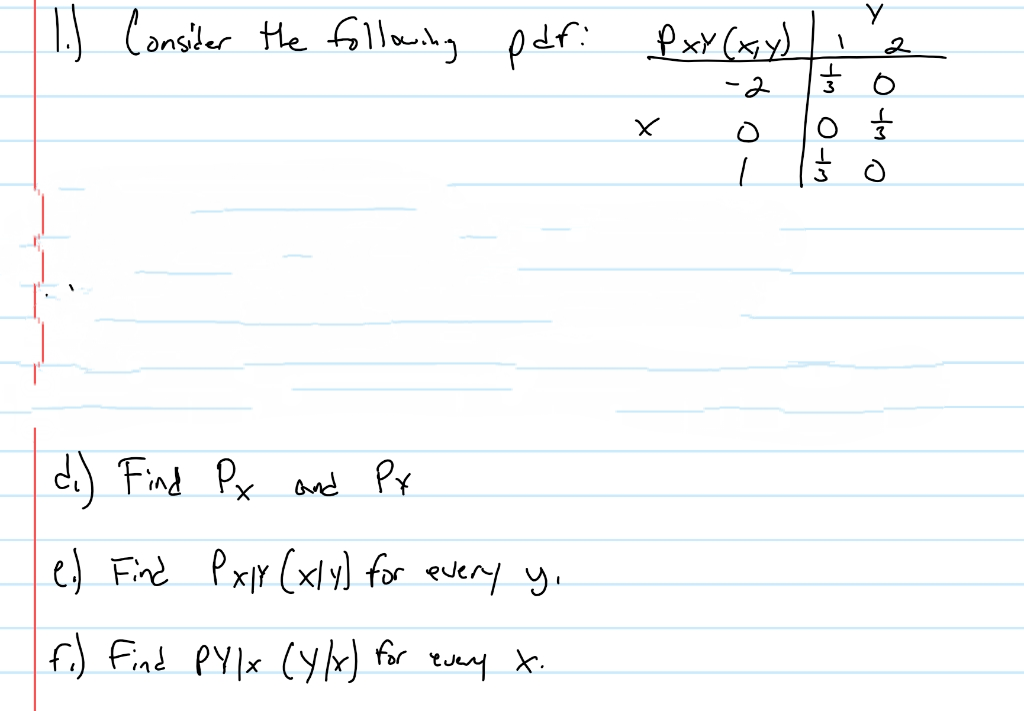 1.) Consider the following pdf: PXY(x,y) | 1 Y 2
-2 | 1/3 0
X 0 | 0 1/3
1 | 1/3 0
d.) Find PX and PY
e.) Find PX|Y (x|y) for every y.
f.) Find PY|X (y|x) for every x.